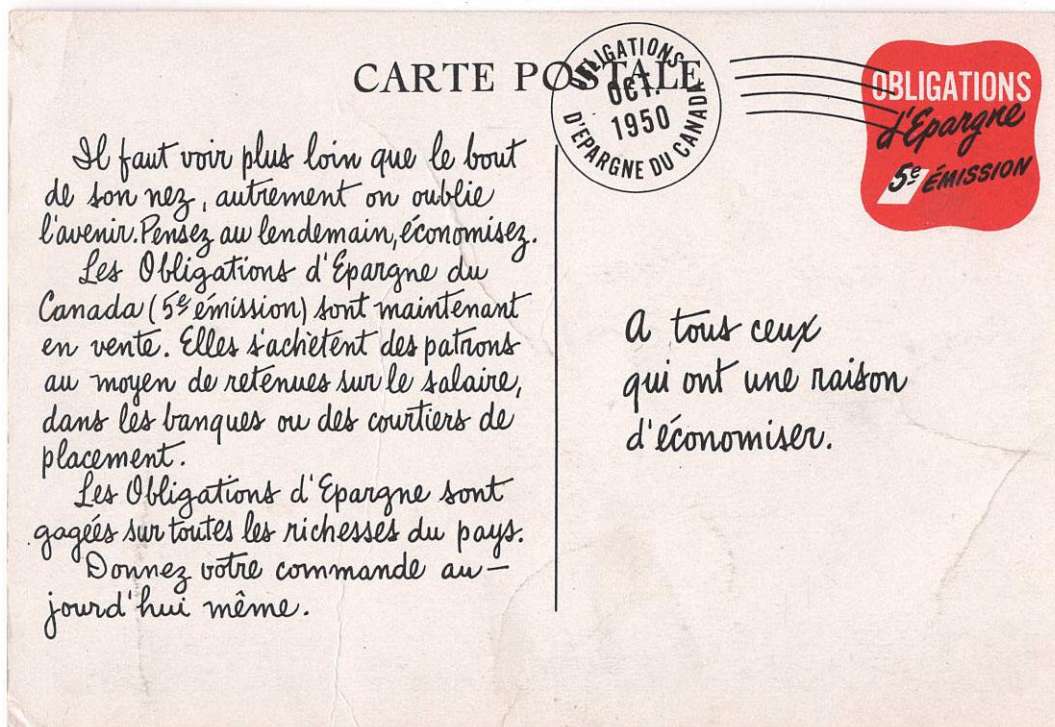 CARTE POSTALE
OBLIGATIONS
OCT.
1950
D'EPARGNE DU CANADA
OBLIGATIONS
d'Epargne
5e ÉMISSION
Il faut voir plus loin que le bout
de son nez, autrement on oublie
l'avenir. Pensez au lendemain, économisez.
Les Obligations d'Epargne du
Canada (5e émission) sont maintenant
en vente. Elles s'achètent des patrons
au moyen de retenues sur le salaire,
dans les banques ou des courtiers de
placement.
Les Obligations d'Epargne sont
gagées sur toutes les richesses du pays.
Donnez votre commande au-
jourd'hui même.
A tous ceux
qui ont une raison
d'économiser.